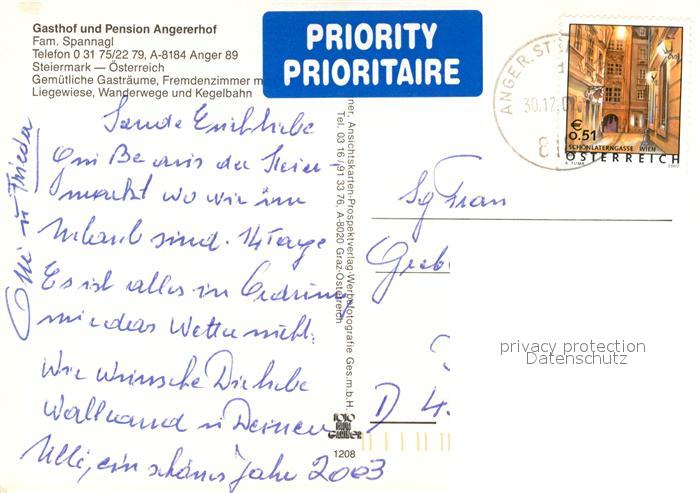 Gasthof und Pension Angererhof
Fam. Spannagl
Telefon 0 31 75/22 79, A-8184 Anger 89
Steiermark — Österreich
Gemütliche Gasträume, Fremdenzimmer m
Liegewiese, Wanderwege und Kegelbahn
PRIORITY
PRIORITAIRE
ANGER.ST
30.12.0
€
0.51
SCHÖNLATERNGASSE WIEN
ÖSTERREICH
liebe
aus der Steier-
markt wo wir im
Urlaub sind. 14 Tage
Es ist alles in Ordnung
nur das Wetter nicht.
Wir wünsche Dir liebe
u Deinen
Ulli, ein schönes Jahr 2003
u Frieder
ner, Ansichtskarten-Prospektverlag-Werbefotografie Ges.m.b.H.
Tel. 03 16/91 33 76, A-8020 Graz-Österreich
FOTO
1208
Frau
Greb
D 4
privacy protection
Datenschutz